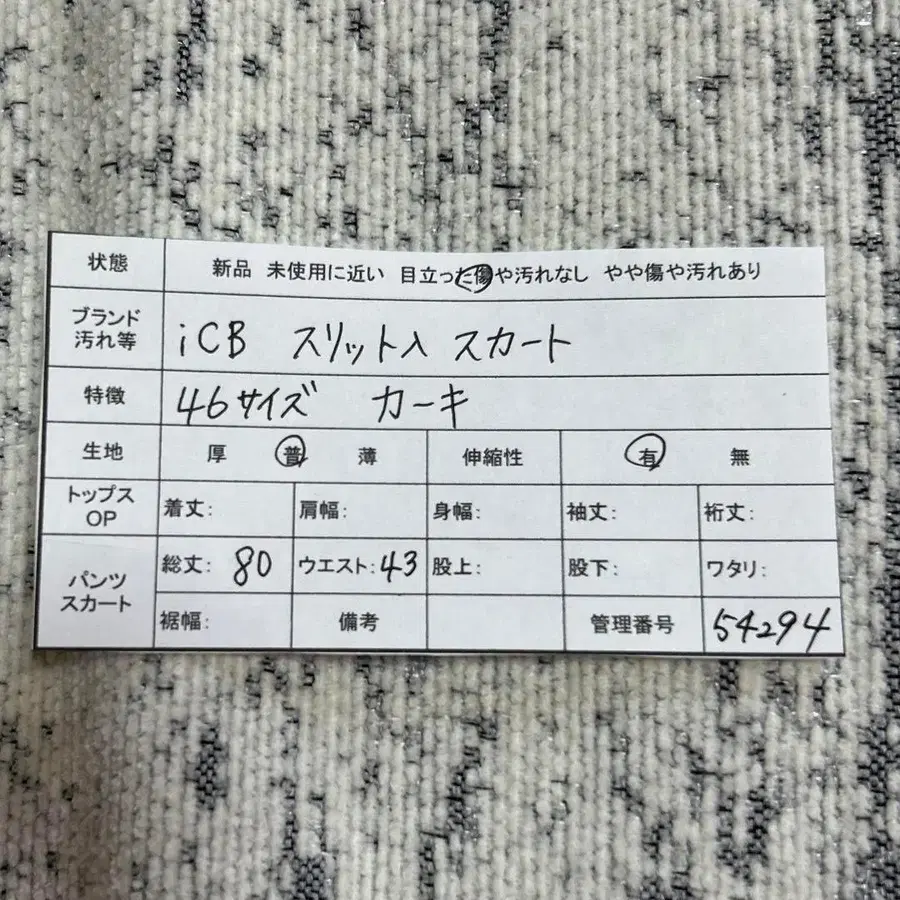 状態 新品 未使用に近い 目立った傷や汚れなし やや傷や汚れあり
ブランド
汚れ等 iCB スリット入 スカート
特徴 46サイズ カーキ
生地 厚 普 薄 伸縮性 有 無
トップス
OP 着丈: 肩幅: 身幅: 袖丈: 裄丈:
パンツ
スカート 総丈: 80 ウエスト: 43 股上: 股下: ワタリ:
裾幅: 備考 管理番号 54294